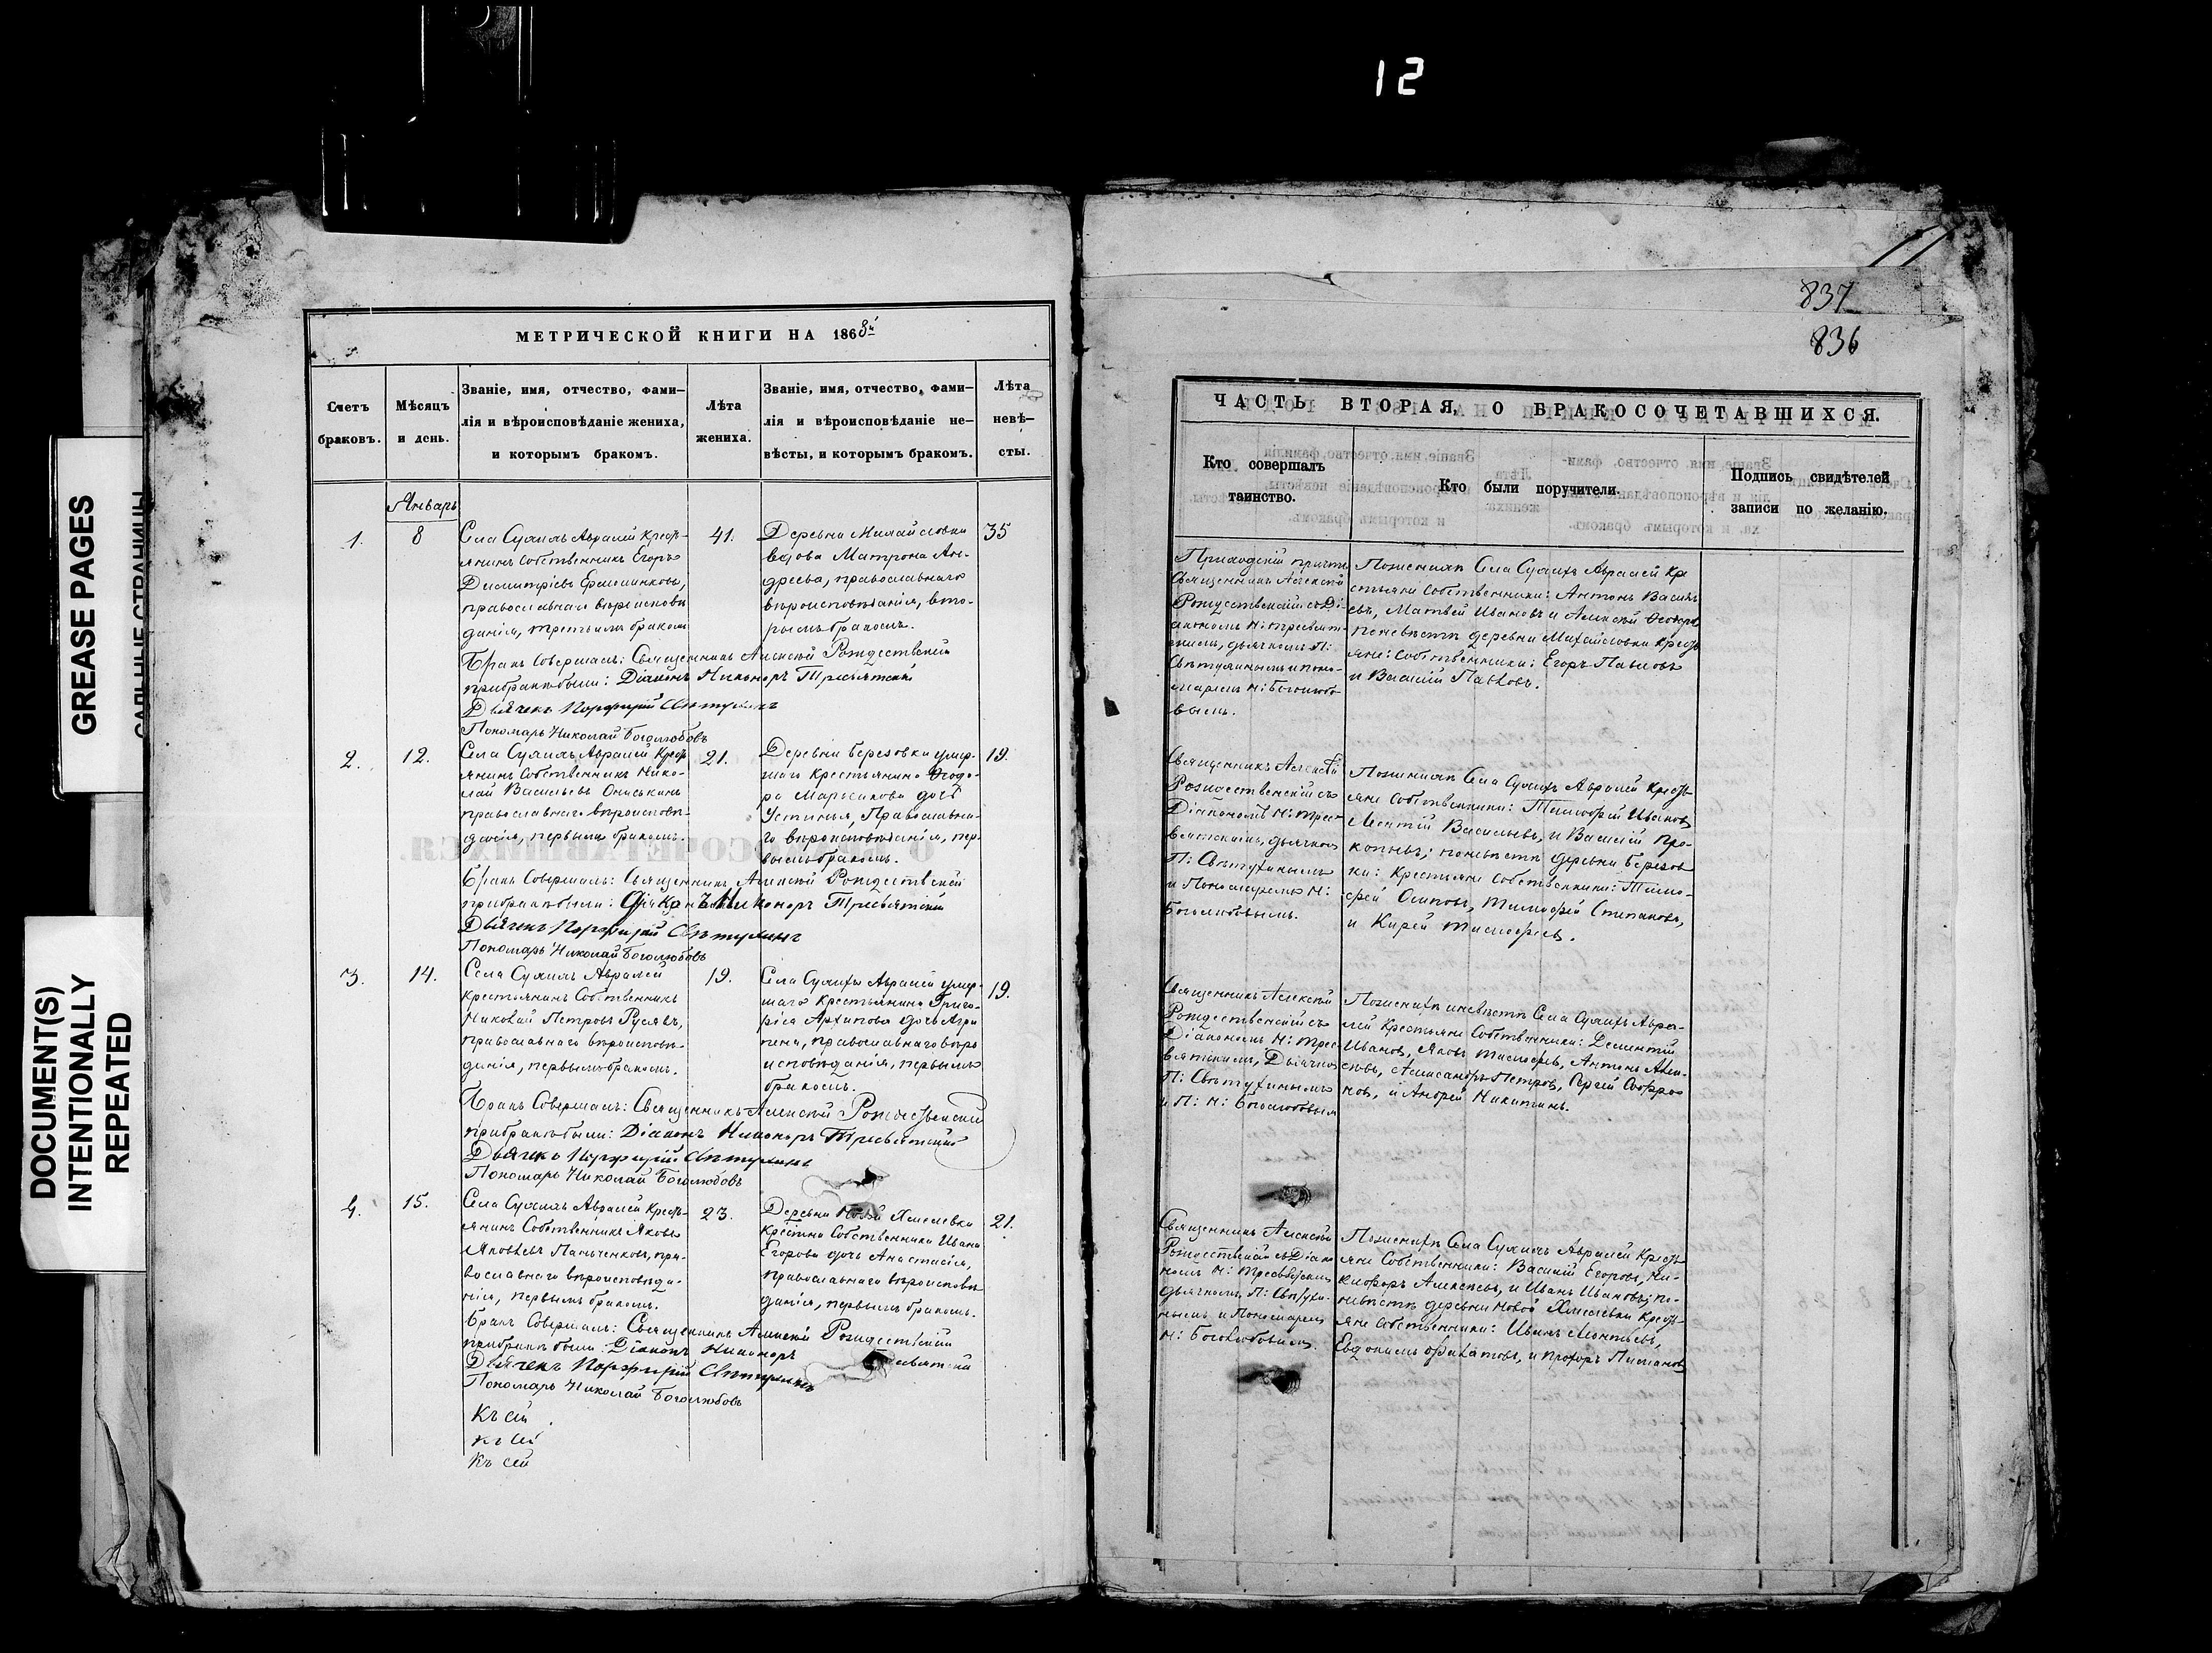 12
GREASE PAGES
САЛЬНЫЕ СТРАНИЦЫ
DOCUMENT(S)
INTENTIONALLY
REPEATED
МЕТРИЧЕСКОЙ КНИГИ НА 1868й
Счетъ
браковъ.
Мѣсяцъ
и день.
Званіе, имя, отчество, фами-
лія и вѣроисповѣданіе жениха,
и которымъ бракомъ.
Лѣта
жениха.
Званіе, имя, отчество, фами-
лія и вѣроисповѣданіе не-
вѣсты, и которымъ бракомъ.
Лѣта
невѣ-
сты.
Январь
1.
8
Села Сухихъ Авралей Кресть-
янинъ Собственникъ Егоръ
Димитріевъ
православнаго вѣроисповѣ
данія, третьимъ бракомъ
41.
Деревни Михайловки
вдова Матрона Ан-
дреева, православнаго
вѣроисповѣданія, вто-
рымъ бракомъ.
35
Бракъ Совершалъ: Священникъ Алексѣй Рождественскій
при бракѣ были: Діаконъ Никаноръ Тресвятскій
Дьячекъ Порфирій Свѣтухинъ
Пономарь Николай Боголюбовъ
2.
12.
Села Сухихъ Авралей Крест
янинъ Собственникъ Нико-
лай Васильевъ Ониськинъ
православнаго вѣроисповѣ-
данія, первымъ бракомъ.
21.
Деревни Березовки умер-
шаго Крестьянина Ѳедо-
ра дочь
Устинья, Православна-
го вѣроисповѣданія, пер-
вымъ бракомъ.
19.
Бракъ Совершалъ: Священникъ Алексѣй Рождественскій
при бракѣ были: Діаконъ Никаноръ Тресвятскій
Дьячекъ Порфирій Свѣтухинъ
Пономарь Николай Боголюбовъ
3.
14.
Села Сухихъ Авралей
Крестьянинъ Собственникъ
Николай Петровъ Русяевъ,
православнаго вѣроисповѣ-
данія, первымъ бракомъ.
19.
Села Сухихъ Авралей умер-
шаго Крестьянина Григо-
рія Архипова дочь Агри
пена, православнаго вѣро
исповѣданія, первымъ
бракомъ.
19.
Бракъ Совершалъ: Священникъ Алексѣй Рождественскій
при бракѣ были: Діаконъ Никаноръ Тресвятскій
Дьячко Порфирій Свѣтухинъ
Пономарь Николай Боголюбовъ
4.
15.
Села Сухихъ Авралей Кресть-
янинъ Собственникъ Яковъ
Яковлевъ Панченковъ, пра-
вославнаго вѣроисповѣда-
нія, первымъ бракомъ.
23.
Деревни Новой Хмелевки
Крестина Собственника Ивана
Егорова дочь Анастасія,
православнаго вѣроисповѣ
данія, первымъ бракомъ.
21.
Бракъ Совершалъ: Священникъ Алексѣй Рождественскій
при бракѣ были: Діаконъ Никаноръ Тресвятскій
Дьячекъ Порфирій Свѣтухинъ
Пономарь Николай Боголюбовъ
Къ сей
Къ сей
Къ сей
11
837
836
ЧАСТЬ ВТОРАЯ, О БРАКОСОЧЕТАВШИХСЯ.
Кто совершалъ
таинство.
Кто были поручители.
Подпись свидѣтелей
записи по желанію.
Приходскій причтъ
Священникъ Алексѣй
Рождественскій съ Ді-
акономъ Н: Тресвят-
скимъ, дьячкомъ П:
Свѣтухинымъ и поно-
маремъ Н: Боголюбо
вымъ.
По женихѣ Села Сухихъ Авралей Кре
стьяни Собственники: Антонъ Василь
евъ, Матвѣй Ивановъ и Алексѣй Ѳедоровъ
по невѣстѣ деревни Михайловки Кресть
яне: Собственники: Егоръ Павловъ
и Василій Павловъ.
Священникъ Алексѣй
Рождественскій съ
Діакономъ Н: Трес-
вятскимъ, дьячкомъ
П: Свѣтухинымъ
и Пономаремъ Н:
Боголюбовымъ.
По женихѣ Села Сухихъ Авралей Кресть-
яне Собственники: Тимофей Ивановъ
Леонтій Васильевъ, и Василій Про-
копьевъ; по невѣстѣ деревни Березов
ки: Крестьяне Собственники: Тимо-
фей Осиповъ, Тимофей Степановъ,
и Кирей Тимофеевъ.
Священникъ Алексѣй
Рождественскій съ
Діакономъ Н: Трес-
вятскимъ, Дьячко
П: Свѣтухинымъ
и П: Н: Боголюбовым
По женихѣ и невѣстѣ Села Сухихъ Авра-
лей Крестьяне Собственники: Дементій
Ивановъ, Яковъ Тимофеевъ, Антонъ Алек-
сѣевъ, Александръ Петровъ, Сергѣй Софро
новъ, и Андрей Никитинъ.
Священникъ Алексѣй
Рождественскій съ Діако
номъ Н: Тресвятскимъ
дьячкомъ П: Свѣтухи-
нымъ и Пономаремъ
Н: Боголюбовымъ.
По женихѣ Села Сухихъ Авралей Кресть-
яне Собственники: Василій Егоровъ, Ни-
кифоръ Алексѣевъ, и Иванъ Ивановъ; по-
невѣстѣ деревни Новой Хмелевки Кресть-
яне Собственники: Иванъ Леонтьевъ,
Евдокимъ Филатовъ, и Прохоръ